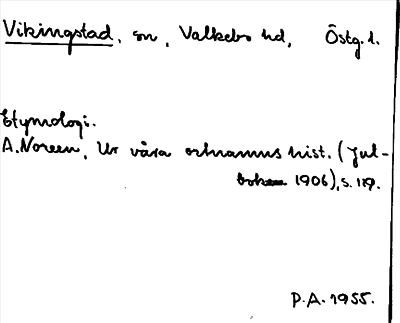 Vikingstad, sn, Valkebo hd, Östg. l.
Etymologi.
A. Noreen, Ur våra ortnamns hist. (Jul-
boken 1906), s. 119.
P.A. 1955.